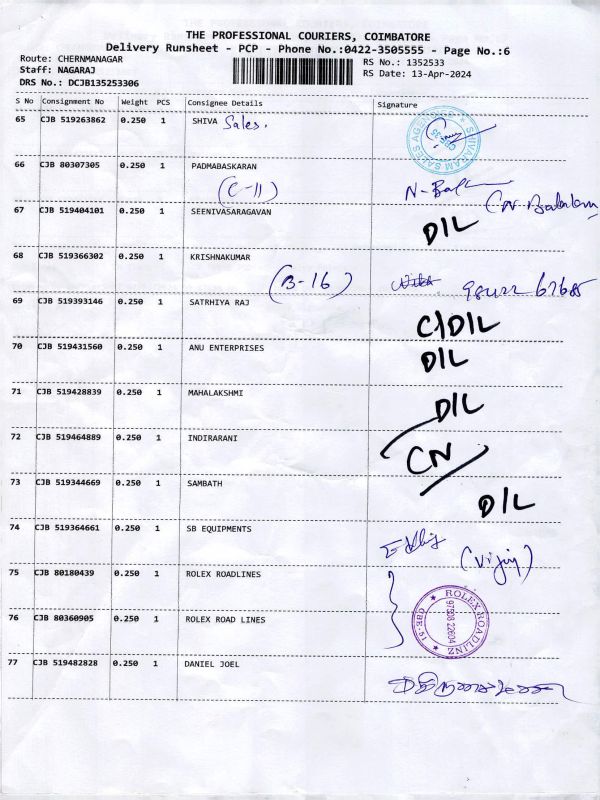 THE PROFESSIONAL COURIERS, COIMBATORE
Delivery Runsheet - PCP - Phone No.:0422-3505555 - Page No.:6
Route: CHERNMANAGAR
Staff: NAGARAJ
DRS No.: DCJB135253306
RS No.: 1352533
RS Date: 13-Apr-2024
S No Consignment No Weight PCS Consignee Details Signature
65 CJB 519263862 0.250 1 SHIVA Sales.
SHIVARAM SALES AGENCIES CBE-35
66 CJB 80307305 0.250 1 PADMABASKARAN
(C-11)
67 CJB 519404101 0.250 1 SEENIVASARAGAVAN D/L
68 CJB 519366302 0.250 1 KRISHNAKUMAR
(B-16)
69 CJB 519393146 0.250 1 SATRHIYA RAJ C/D/L
70 CJB 519431560 0.250 1 ANU ENTERPRISES D/L
71 CJB 519428839 0.250 1 MAHALAKSHMI D/L
72 CJB 519464889 0.250 1 INDIRARANI CN
73 CJB 519344669 0.250 1 SAMBATH D/L
74 CJB 519364661 0.250 1 SB EQUIPMENTS
75 CJB 80180439 0.250 1 ROLEX ROADLINES
ROLEX ROADLINZ 97508 22604 CBE-15
76 CJB 80360905 0.250 1 ROLEX ROAD LINES
77 CJB 519482828 0.250 1 DANIEL JOEL